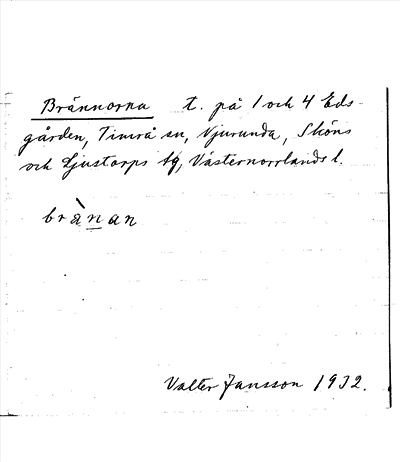 Brännorna t. på 1 och 4 Eds-
gården, Timrå sn, Njurunda, Sköns
och Ljustorps tg, Västernorrlands l.
brànan
Valter Jansson 1932.